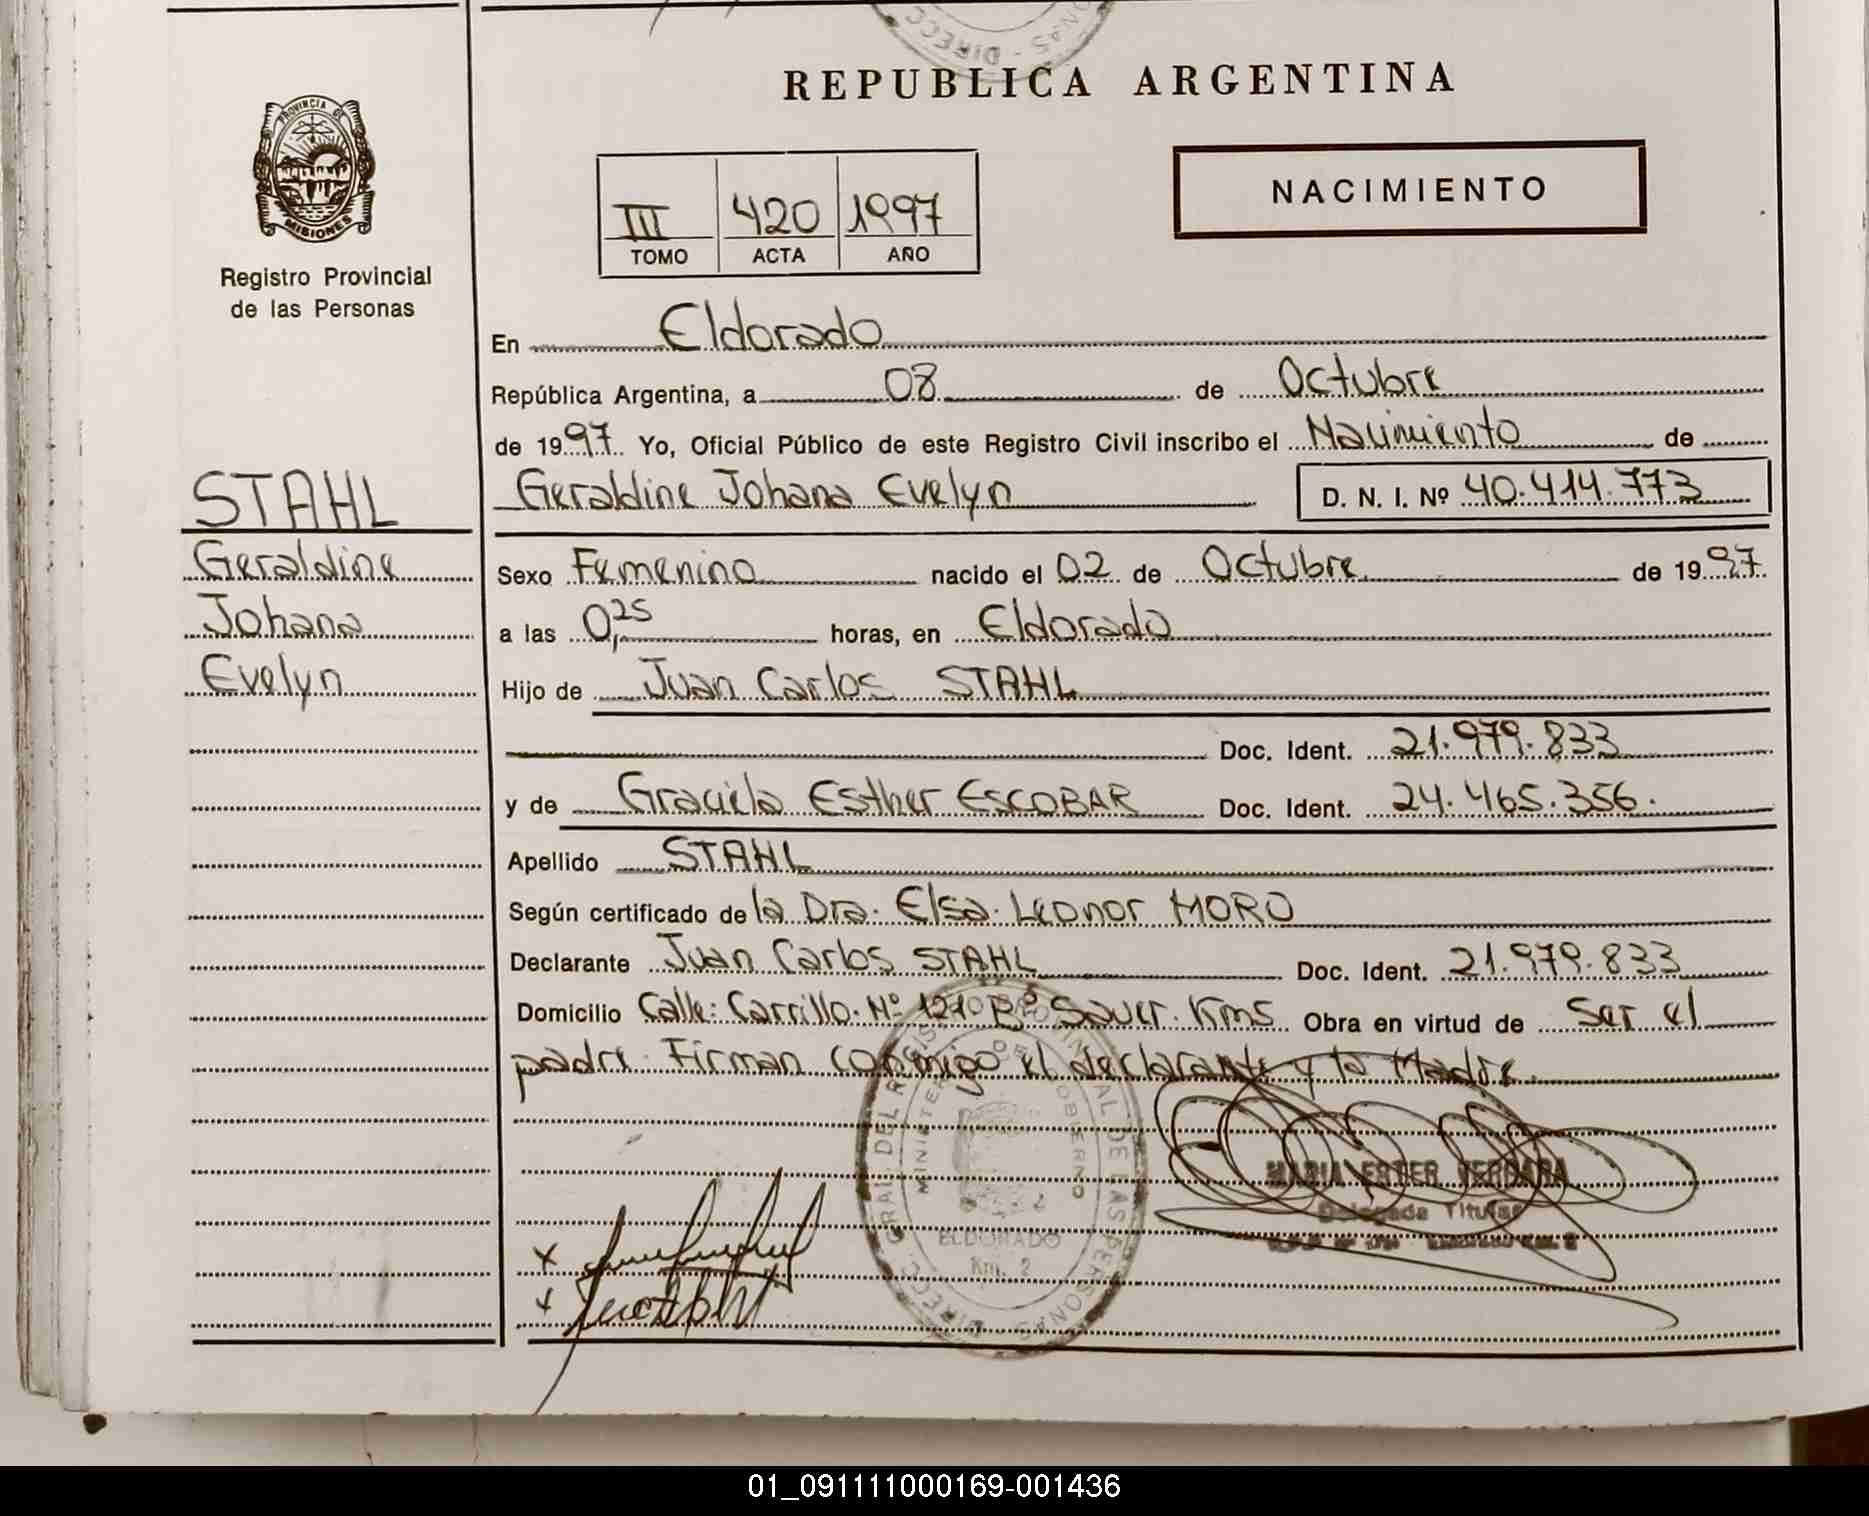 REPUBLICA ARGENTINA
PROVINCIA DE
MISIONES
Registro Provincial
de las Personas
III 420 1997
TOMO ACTA AÑO
NACIMIENTO
En Eldorado
República Argentina, a 08 de Octubre
de 1997 Yo, Oficial Público de este Registro Civil inscribo el Nacimiento de
Geraldine Johana Evelyn D. N. I. Nº 40.414.773
STAHL
Geraldine
Johana
Evelyn
Sexo Femenino nacido el 02 de Octubre de 1997
a las 0,25 horas, en Eldorado
Hijo de Juan Carlos STAHL
Doc. Ident. 21.979.833
y de Graciela Esther ESCOBAR Doc. Ident. 24.465.356.
Apellido STAHL
Según certificado de la Dra. Elsa Leonor MORO
Declarante Juan Carlos STAHL Doc. Ident. 21.979.833
Domicilio Calle: Carrillo Nº 1210 Bº Sauer Km5 Obra en virtud de Ser el
padre. Firman conmigo el declarante y la Madre.
MARIA ESTER VERGARA
Delegada Titular
ELDORADO
Km. 2
01_091111000169-001436